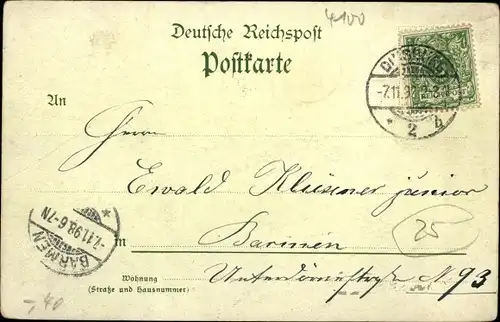 4100
Deutsche Reichspost
Postkarte
-7.11.98.2-3.N
* 2 b
An
Herrn
Ewald Klüsener junior
25
in Barmen
BARMEN
-7.11.98.6-7N
*
Wohnung
(Straße und Hausnummer)
N 93
-,40